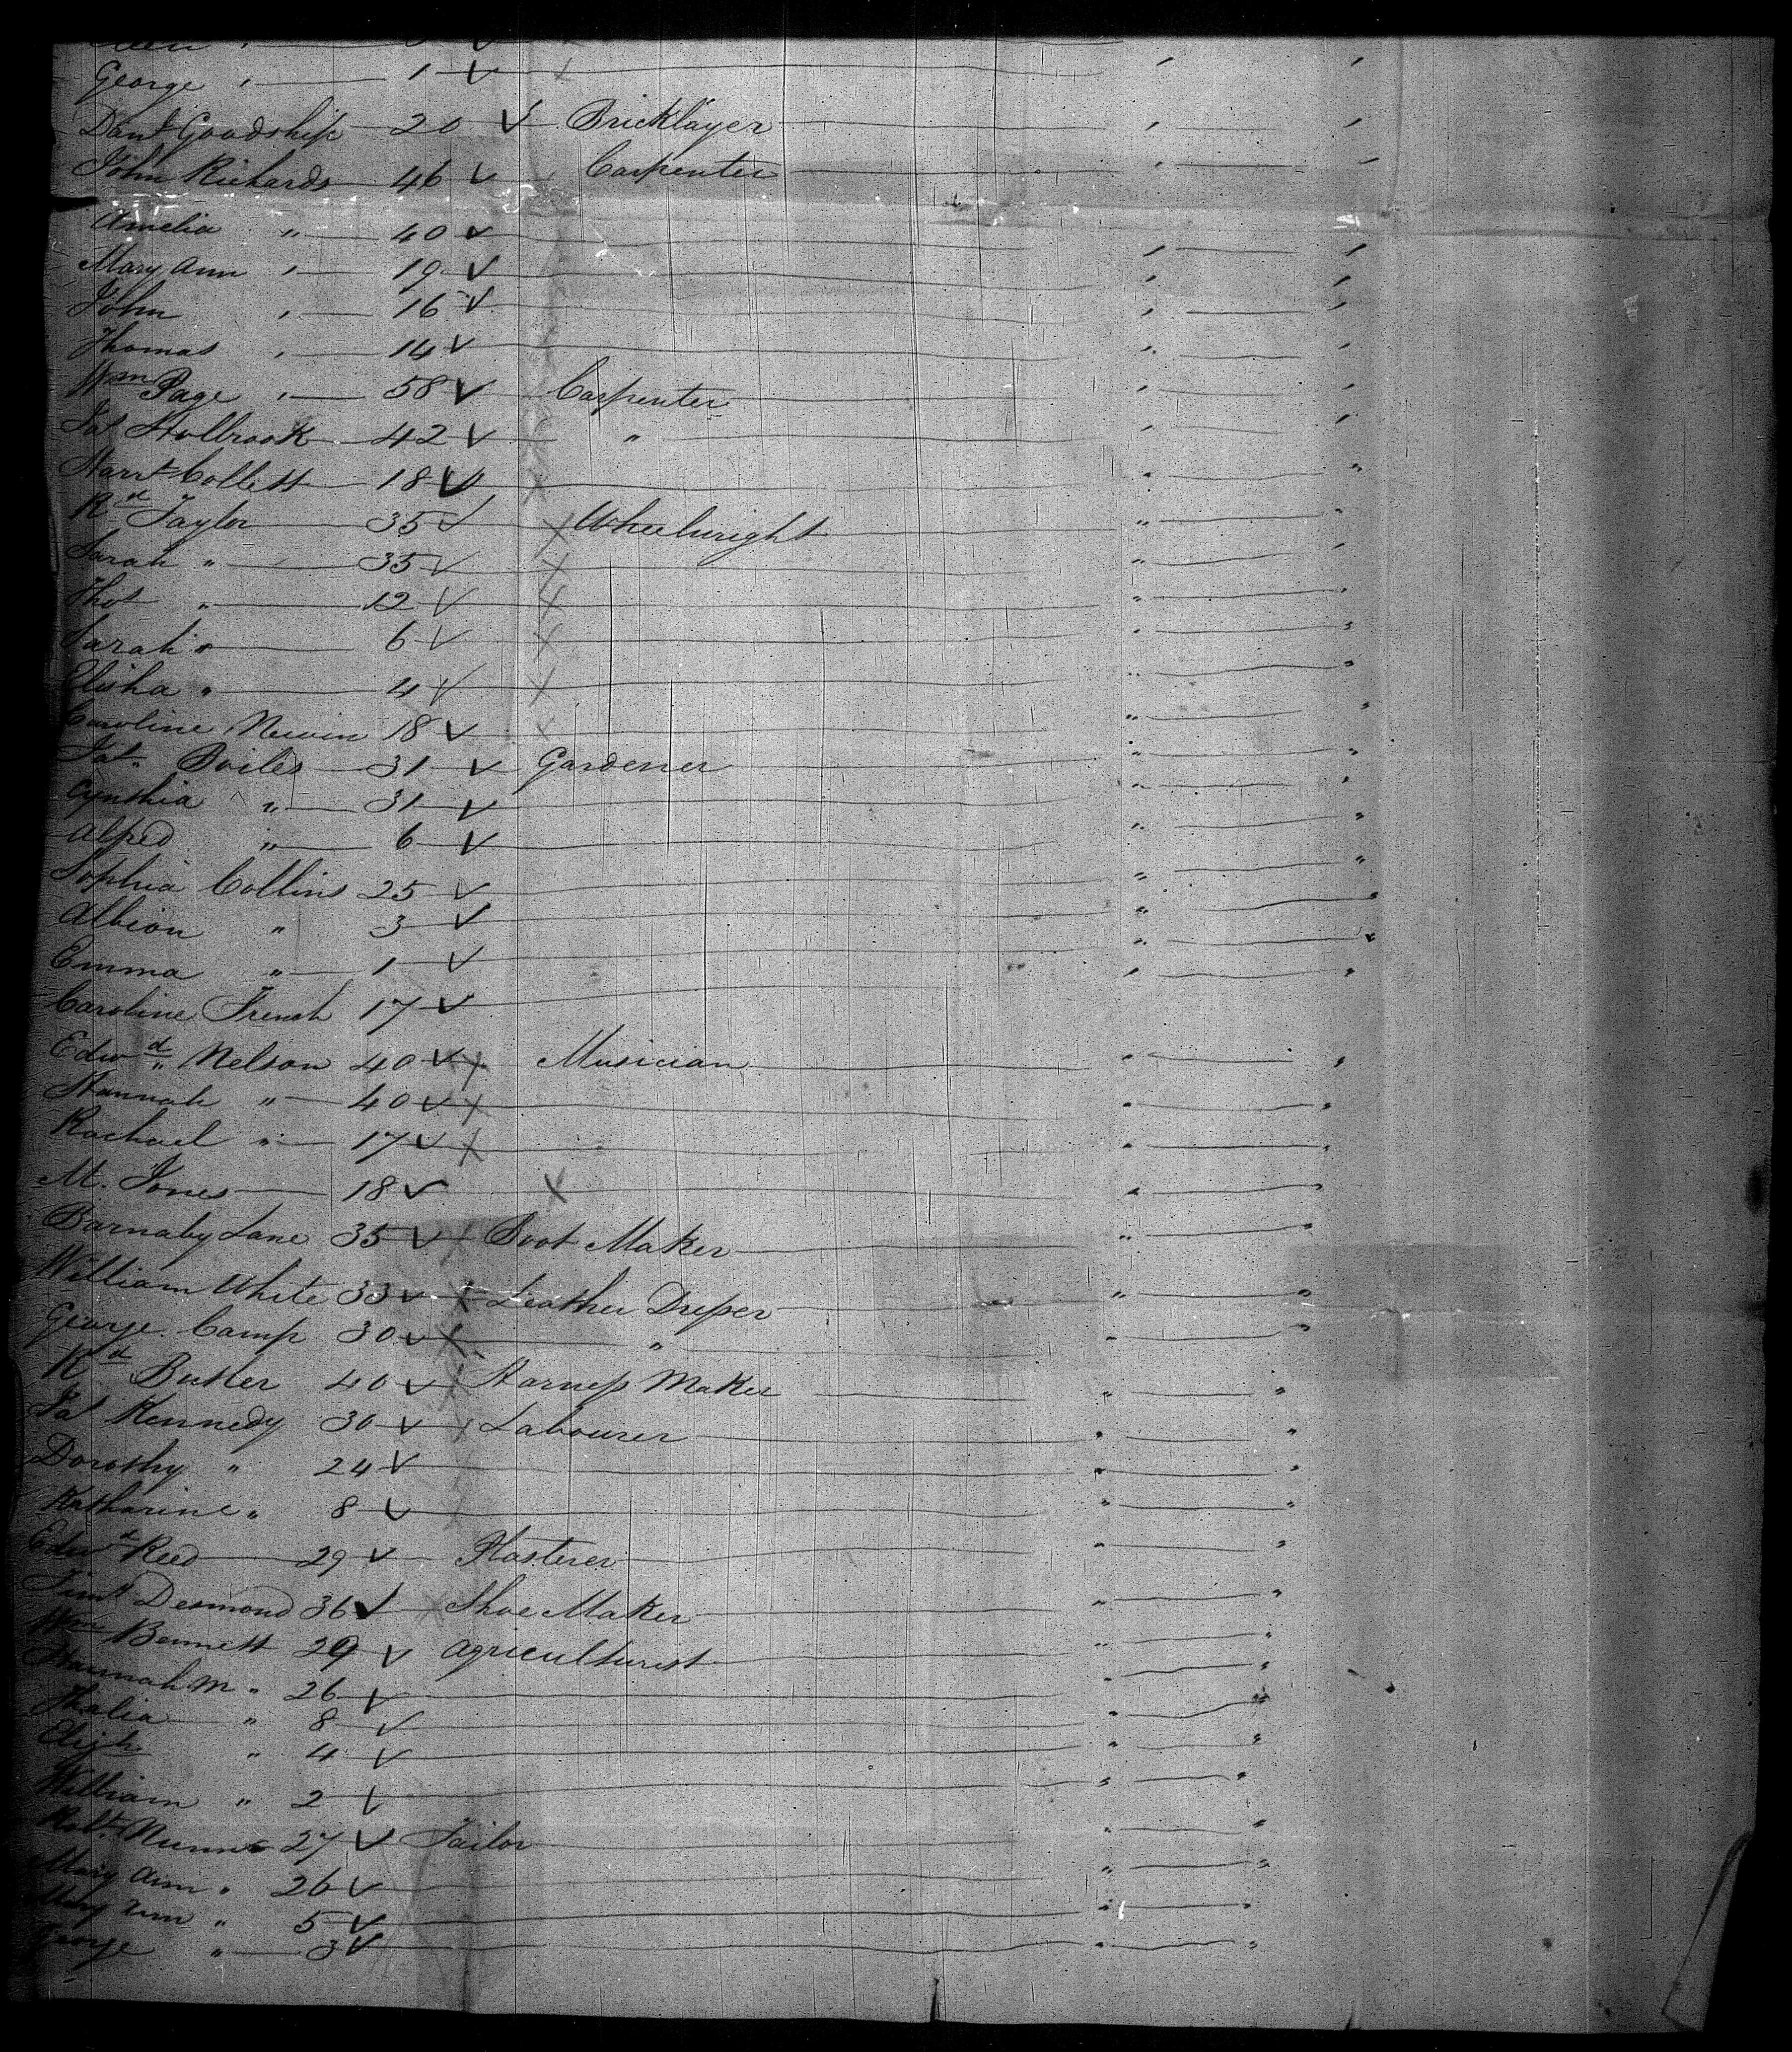 George " 1 ✓ x " "
Danl Goodship 20 ✓ Bricklayer " "
John Richards 46 ✓ Carpenter " "
Amelia " 40 ✓ " "
Mary Ann " 19 ✓ " "
John " 16 ✓ " "
Thomas " 14 ✓ " "
Wm Page " 58 ✓ Carpenter " "
Jas Holbrook 42 ✓ " " "
Harrt Collett 18 ✓ x " "
Rd Taylor 35 ✓ x Wheelwright " "
Sarah " 35 ✓ x " "
Thos " 12 ✓ x " "
Sarah " 6 ✓ x " "
Elisha " 4 ✓ x " "
Caroline 18 ✓ x " "
Jas. Boiles 31 ✓ Gardener " "
Cynthia " 31 ✓ " "
Alfred " 6 ✓ " "
Sophia Collins 25 ✓ " "
Albion " 3 ✓ " "
Emma " 1 ✓ " "
Caroline French 17 ✓ " "
Edwd Nelson 40 ✓ x Musician " "
Hannah " 40 ✓ x " "
Rachael " 17 ✓ x " "
M. Jones 18 ✓ x " "
Barnaby Lane 35 ✓ x Boot Maker " "
William White 33 ✓ x Leather Dresser " "
George Camp 30 ✓ x " " "
Rd Butler 40 ✓ x Harness Maker " "
Jas Kennedy 30 ✓ x Labourer " "
Dorothy " 24 ✓ " "
Katharine " 8 ✓ " "
Edwd Reed 29 ✓ Plasterer " "
Timy Desmond 36 ✓ x Shoe Maker " "
Wm Bennett 29 ✓ Agriculturist " "
Hannah M " 26 ✓ " "
Thalia " 8 ✓ " "
" 4 ✓ " "
William " 2 ✓ " "
Robt. Nunn 27 ✓ Tailor " "
Mary Ann " 26 ✓ " "
Mary Ann " 5 ✓ " "
George " 3 ✓ " "